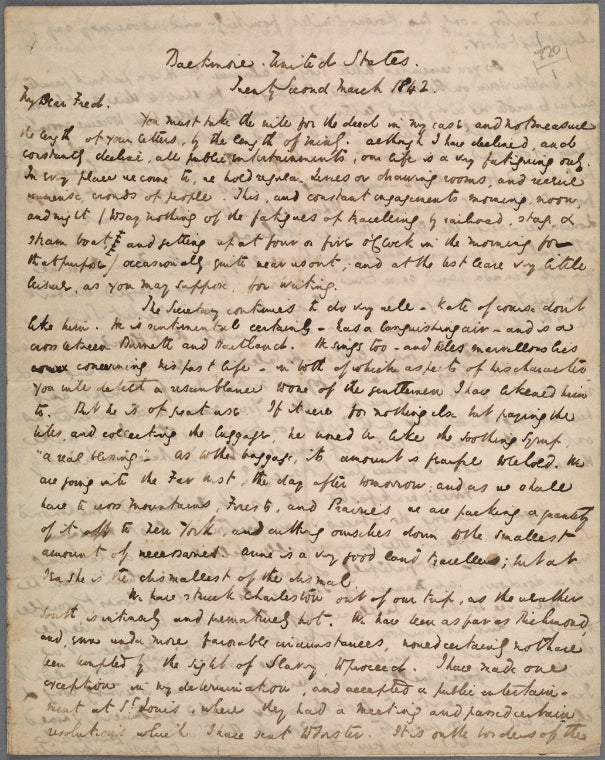 220
1
Baltimore. United States.
Twenty Second March 1842.
My Dear Fred.
You must take the will for the deed in my case, and not measure
the length of your letters, by the length of mine. Although I have declined, and
constantly decline, all public entertainments, our life is a very fatiguing one.
In every place we come to, we hold regular Levees or drawing rooms, and receive
immense crowds of people. This, and constant engagements morning, noon,
and night (to say nothing of the fatigues of travelling by railroad, stage, &
steam boat; and getting up at four or five oClock in the morning for
that purpose) occasionally quite wear us out; and at the best leave very little
leisure, as you may suppose, for writing.
The Secretary continues to do very well – Kate of course don't
like him. He is sentimental certainly – has a languishing air – and is a
cross between Burnett and Hartland. He sings too – and tells marvellous lies
concerning his past life – in both of which aspects of his character
you will detect a resemblance to one of the gentlemen I have likened him
to. But he is of great use. If it were for nothing else but paying the
bills, and collecting the luggage, he would be, like the soothing Syrup,
"a real blessing". As to the baggage, its amount is fearful to behold. We
are going into the Far West, the day after tomorrow; and as we shall
have to cross Mountains, Forests, and Prairies we are packing a quantity
of it off to New York and cutting ourselves down to the smallest
amount of necessaries. Anne is a very good land traveller; but at
Sea she is the dismallest of the dismal.
We have struck Charleston out of our trip, as the weather
South is intensely and prematurely hot. We have been as far as Richmond,
and, even under more favorable circumstances, would certainly not have
been tempted by the sight of Slavery, to proceed. I have made one
exception in my determination, and accepted a public entertain-
ment at St. Louis, where they had a meeting and passed certain
resolutions which I have sent to Forster. It is on the borders of the